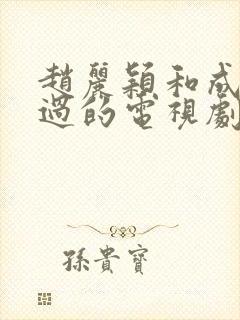 趙麗穎和成
過的電視劇
孫貴寶